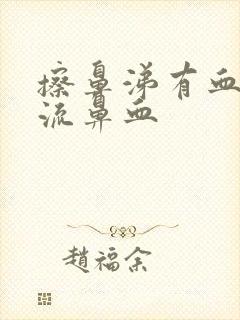 擦鼻涕有血
流鼻血
趙福余